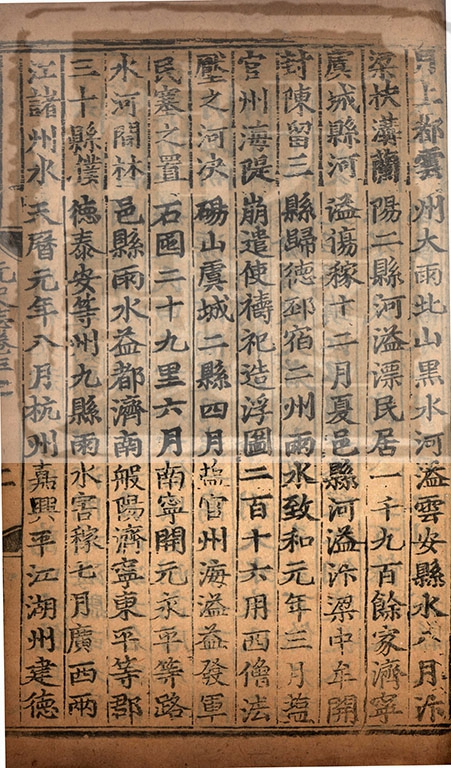 月上都雲州大雨北山黑水河溢雲安縣水八月汴
梁扶溝蘭陽二縣河溢漂民居一千九百餘家濟寧
虞城縣河溢傷稼十二月夏邑縣河溢汴梁中牟開
封陳留三縣歸德邳宿二州雨水致和元年三月盐
官州海隄崩遣使禱祀造浮圖二百十六用西僧法
壓之河决碭山虞城二縣四月盐官州海溢益發軍
民塞之置石囤二十九里六月南寧開元永平等路
水河間林邑縣雨水益都濟南般陽濟寧東平等郡
三十縣濮德泰安等州九縣雨水害稼七月廣西兩
江諸州水天曆元年八月杭州嘉興平江湖州建德